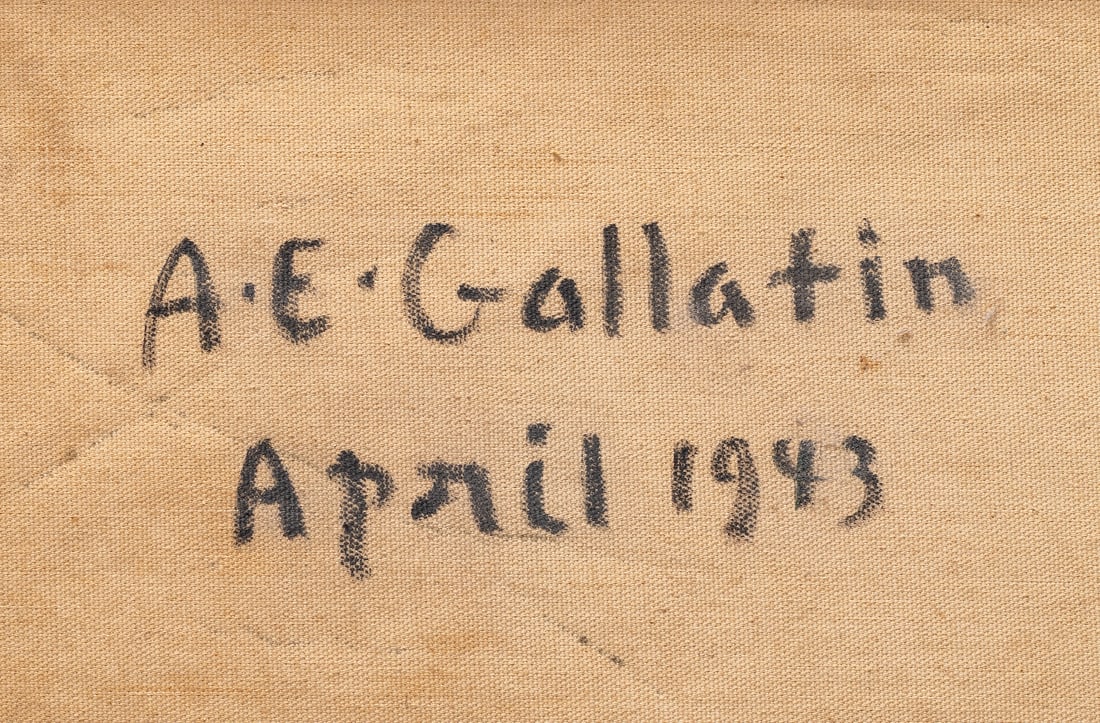 A·E·Gallatin
April 1943